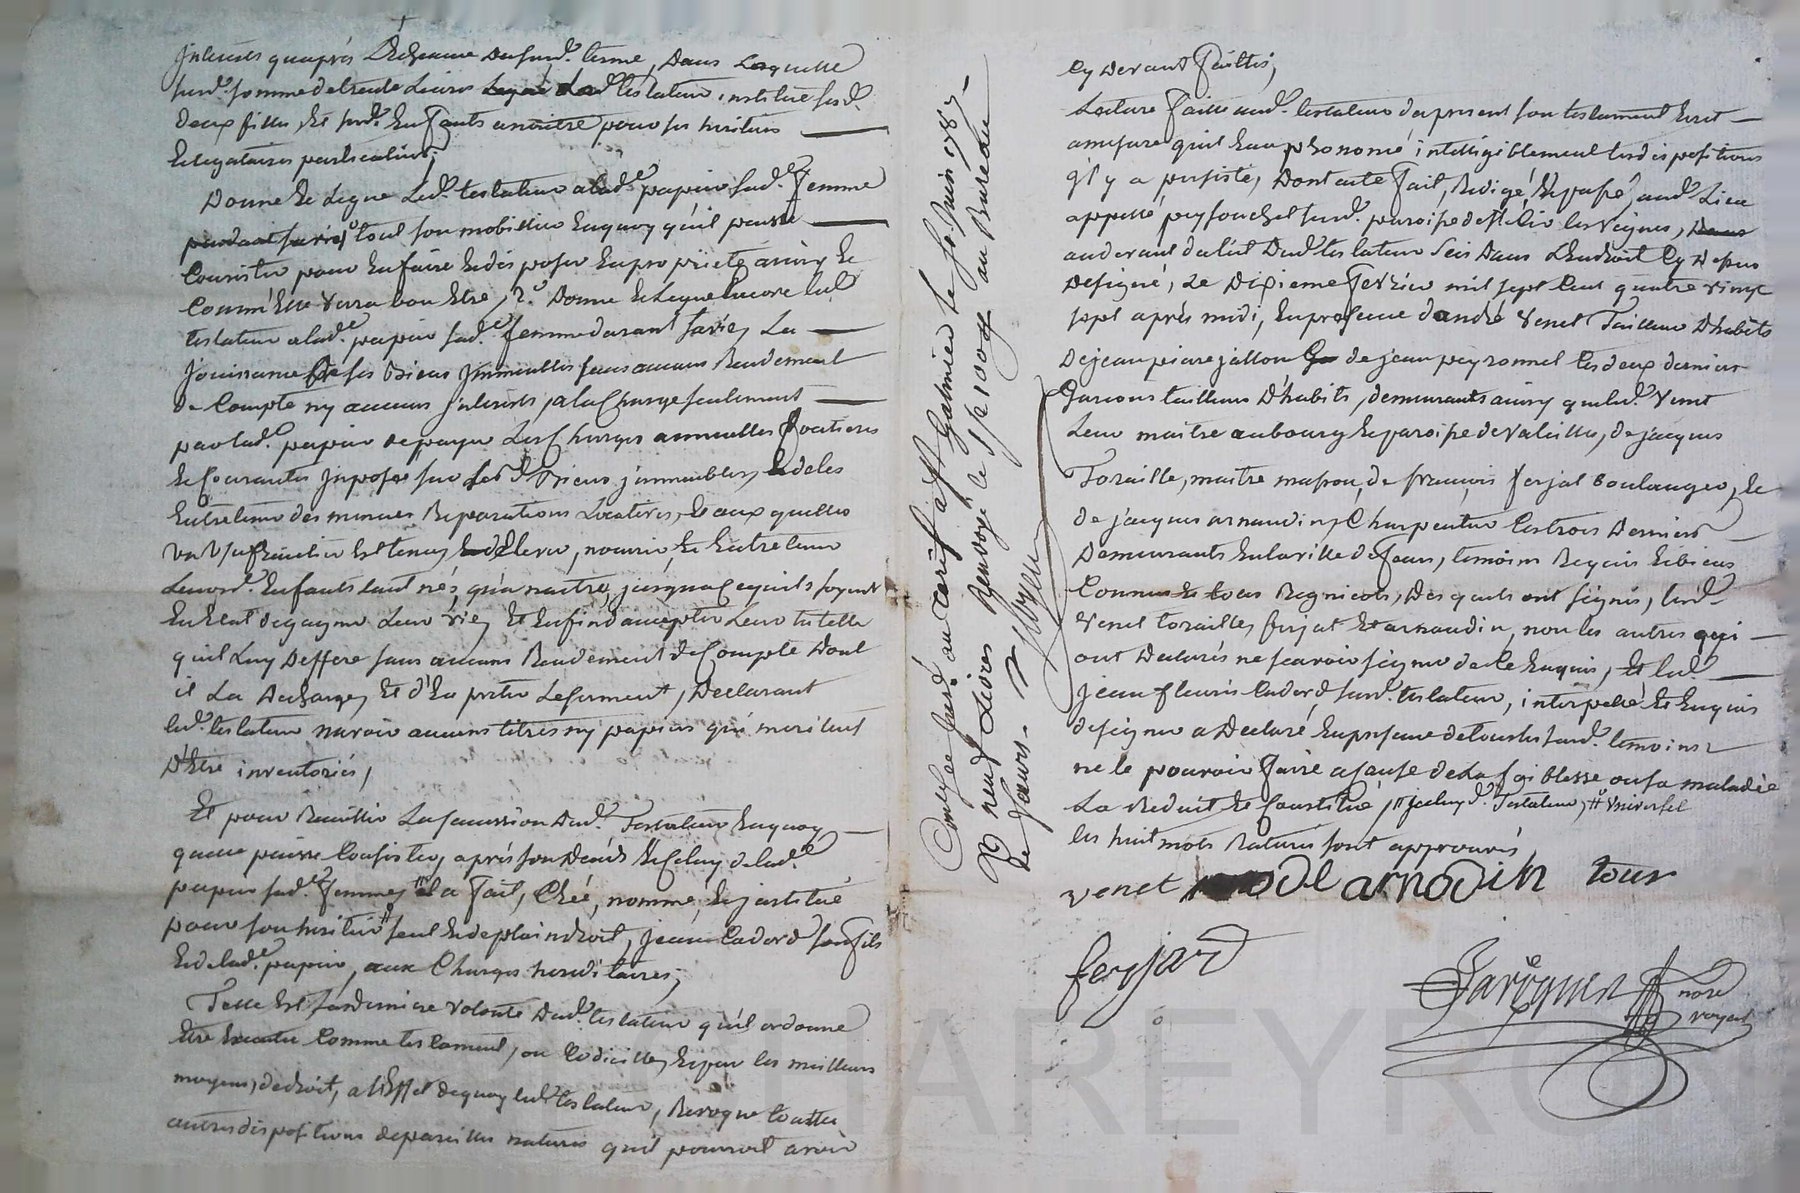 Interests qu'après L'Echeance dusud.t terme, Dans Laquelle
susd.e somme de trente Livres Legué Led.t testateur, institue sesd.
deux filles, et sesd.s Enfants a naitre pour ses heritiers
et legataires particuliers;
Donne et Legue Led.t testateur a lad.e papier sad.e femme
pendant sa vie tout son mobillier Enquoy qu'il puisse
Consister pour En faire et disposer En propriete ainsy et
Comm'Elle verra bon Etre, 2.o Donne et Legue Encore led.t
testateur a lad.e papier sad.e femme durant sa vie, La
Jouissance de ses Biens Immeubles sans aucun Rendement
de Compte ny aucuns Interests, a la Charge seulement
par lad.e papier de payer Les Charges annuelles foncieres
et Courantes Imposées sur lesd. Biens immeubles, et de les
Entretenir des menues Reparations Locatives, et aux quelles
un usufruitier est tenu, et d'Elever, nourrir et Entretenir
Leursd. Enfants tant nés qu'a naitre, jusqu'a ce qu'ils soyent
En Etat de gagner Leur vie, Et Enfin d'accepter Leur tutelle
qu'il Luy Deffere sans aucun Rendement de Compte Dont
il La Decharge, Et d'En preter Le serment, Declarant
led.t testateur n'avoir aucuns titres ny papiers qui meritent
D'Etre inventoriés,
Et pour Recuillir La succession Dud.t Testateur Enquoy
quelle puisse Consister, après son Decés et Celuy de lad.e
papier sad.e femme, il a fait, Créé, nommé, et institué
pour son heritier seul et de plain droit, jean Cadord son fils
Et de lad.e papier, aux Charges hereditaires;
Telle Est sa derniere volonté Dud.t testateur qu'il ordonne
Etre Executée Comme testament, ou Codicille, et par les meilleurs
moyens de droit, a l'Effet de quoy led.t testateur, Revoque touttes
autres dispositions de pareilles natures qu'il pourroit avoir
Controllé Insinué au tarif a S.t Galmier le Juin 1787
R neuf Livres Renvoyé le s/p 100.e au Bureau
de feurs
Cy Devant faittes;
Lecture faitte aud.t testateur du present son testament Ecrit
amesure qu'il En a prononcé intelligiblement les dispositions
qu'il y a persisté, Dont acte fait, Redigé, Et passé, aud.t Lieu
appellé peyfouchet susd.e paroisse de les veignes, Dans
au devant du lit Dud.t testateur seis Dans L'Endroit Cy Dessus
Designé, Le Dixieme fevrier mil sept Cent quatre vingt
sept après midi, En presence d'andré venet Tailleur D'habits
De jean pierre jallon de jean peyronnel les deux derniers
Garcons tailleurs D'habits, demeurants ainsy que led.t venet
Leur maitre au bourg et paroisse de valeille, de jacques
Toraille, maitre masson, de francois ferjat Boulanger, et
de jacques arnaudin, Charpentier les trois Derniers
Demeurants En la ville de feurs, temoins Requis Et bien
Connus et tous Regnicols, Des quels ont signés, lesd.
venet toraille, ferjat Et arnaudin, non les autres qui
ont Declarés ne scavoir signer de Ce Enquis, Et led.t
jean fleuris Cadord susd.t testateur, interpellé Et Enquis
de signer a Declaré En presence de tous les susd. temoins
ne le pouvoir faire a Cause de La foiblesse ou sa maladie
La Reduit et Constitué, Testateur, # universel
les huit mots Ratures sont approuvés
venet arnodin tour
ferjard
nore
royal